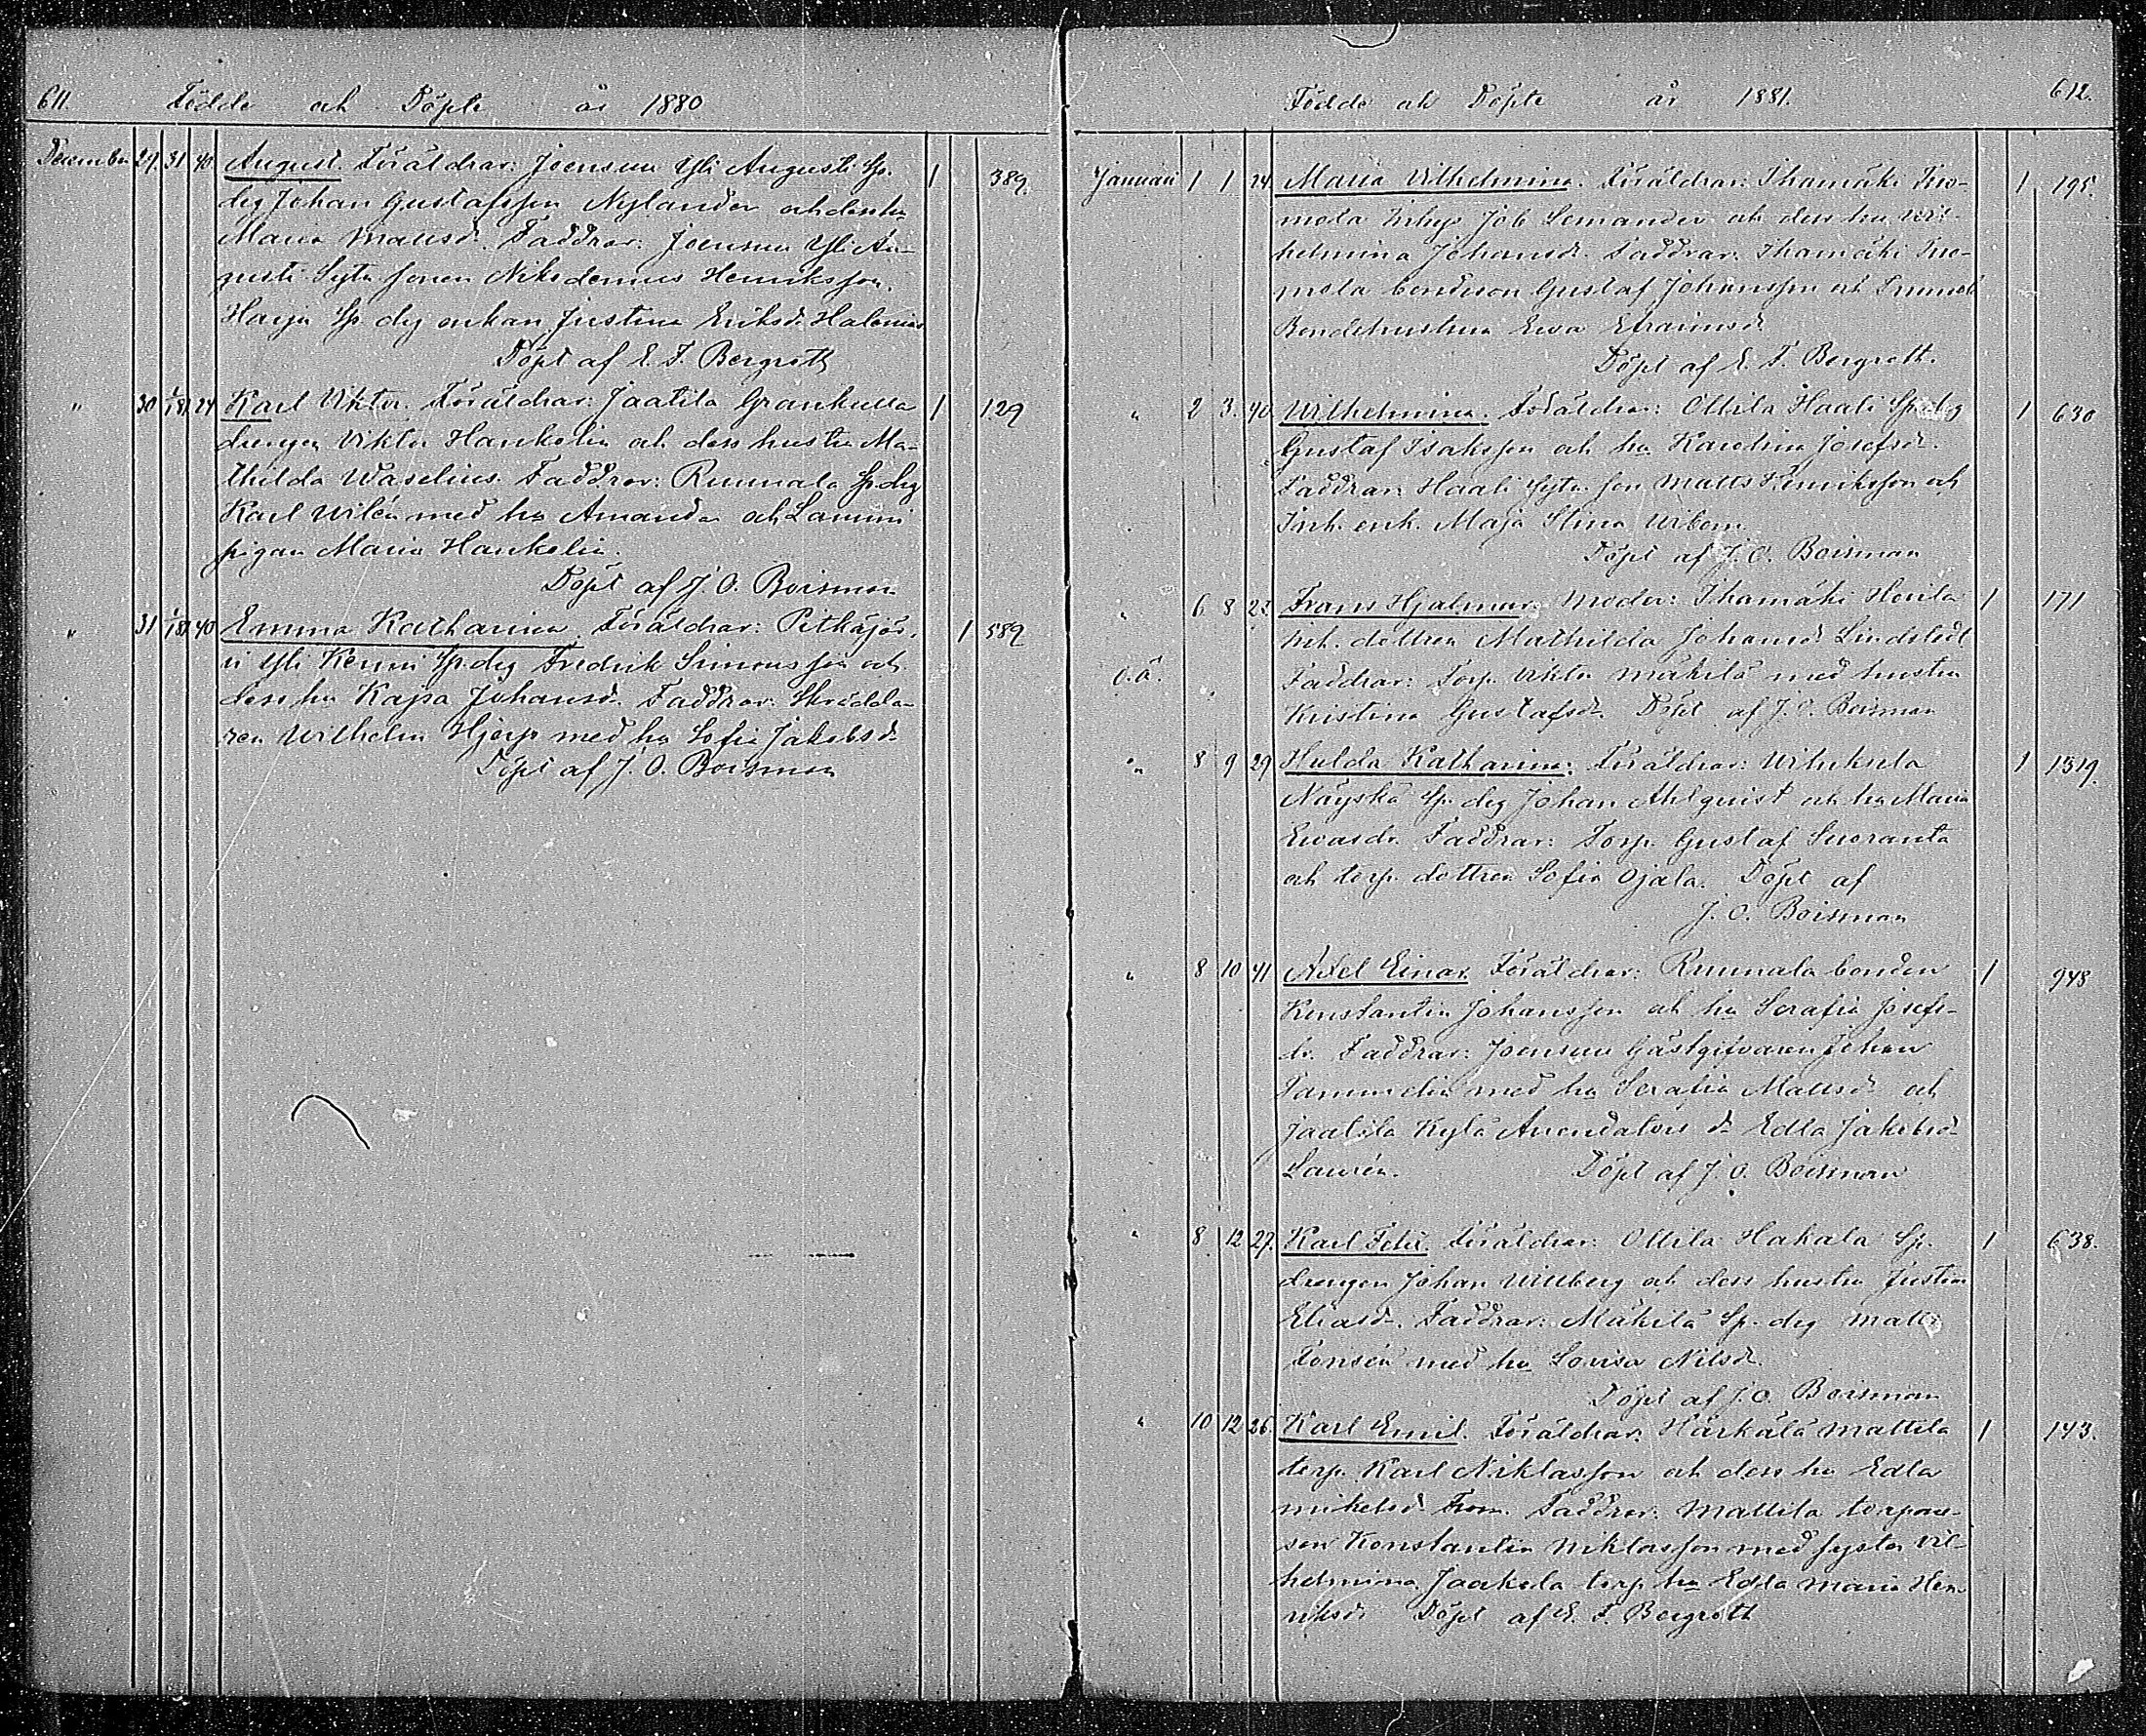 611. Födde och Döpte år 1880
December 29. 31 40. August. Föräldrar: Joensuu Yli Augusti Sp. 1 389.
drg Johan Gustafsson Nylander och dess hu
Maria Mattsdr. Faddrar: Joensuu Yli Au-
gusti Sytn. sonen Nikodemus Henriksson.
Harju Sp. drg enkan Justina Eriksdr
Döpt af E. F. Bergroth
" 30 1/1 81 24 Karl Viktor. Föräldrar: Jaatila Grankulla 1 129
drengen Viktor Hankelin och dess hustru Ma-
thilda Waselius. Faddrar: Ruunala Sp. drg
Karl Wilén med hu Amanda och Lammi
pigan Maria Hankelin.
Döpt af J. O. Boisman
" 31 1/1 81 40 Emma Katharina. Föräldrar: Pitkäjär- 1 589
vi Yli Kenni Sp. drg Fredrik Simonsson och
dess hu Kajsa Johansdr. Faddrar: Skrädda-
ren Wilhelm Hjerp med hu Sofia Jakobsdr
Döpt af J. O. Boisman
Födde och Döpte år 1881. 612.
Januari 1 1 24. Maria Vilhelmina. Föräldrar: Ihamäki 1 195.
Inhys Job Semander och dess hu Vil-
helmina Johansdr. Faddrar: Ihamäki
bondeson Gustaf Johansson och
Bondehustrun Ewa Efraimsdr
Döpt af E. F. Bergroth.
" 2 3. 40 Wilhelmina. Föräldrar: Ottila Haali Sp. drg 1 630
Gustaf Isaksson och hu Karolina Josefsdr.
Faddrar: Haali Sytn. son Matts Henriksson och
Inh. enk. Maja Stina Wibom
Döpt af J. O. Boisman
" 6 8 23. Frans Hjalmar. Moder: Ihamäki Heu 1 171
Inh. dottren Mathilda Johansdr Lindstedt
o.ä. Faddrar: Torp. Viktor Mäkilä med hustru
Kristina Gustafsdr. Döpt af J. O. Boisman
" 8 9 29 Hulda Katharina. Föräldrar: 1 1319.
Näyskä Sp. drg Johan Ahlquist och hu Maria
Ewasdr. Faddrar: Torp. Gustaf Suoranta
och torp. dottren Sofia Ojala. Döpt af
J. O. Boisman
" 8 10 41 Axel Einar. Föräldrar: Ruunala bonden 1 948
Konstantin Johansson och hu Serafia Josefs-
dr. Faddrar: Joensuu Gästgifvaren Johan
Tammelin med hu Serafia Mattsdr och
Jaatila Kylä Arendators dr Edla Jakobsdr
Laurén. Döpt af J. O. Boisman
" 8. 12 27. Karl Felix. Föräldrar: Ottila Hakala Sp. 1 638.
drengen Johan Willberg och dess hustru Justina
Eliasdr. Faddrar: Mäkilä Sp. drg Matts
Fonsén med hu Lovisa Nilsdr.
Döpt af J. O. Boisman
" 10 12 26. Karl Emil. Föräldrar: Härkälä Mattila 1 143.
torp. Karl Niklasson och dess hu Edla
Mikelsdr From. Faddrar: Mattila torpare-
son Konstantin Niklasson med syster Vil-
helmina Jaakola torp. hu Edla Maria Hen-
riksdr Döpt af E. F. Bergroth